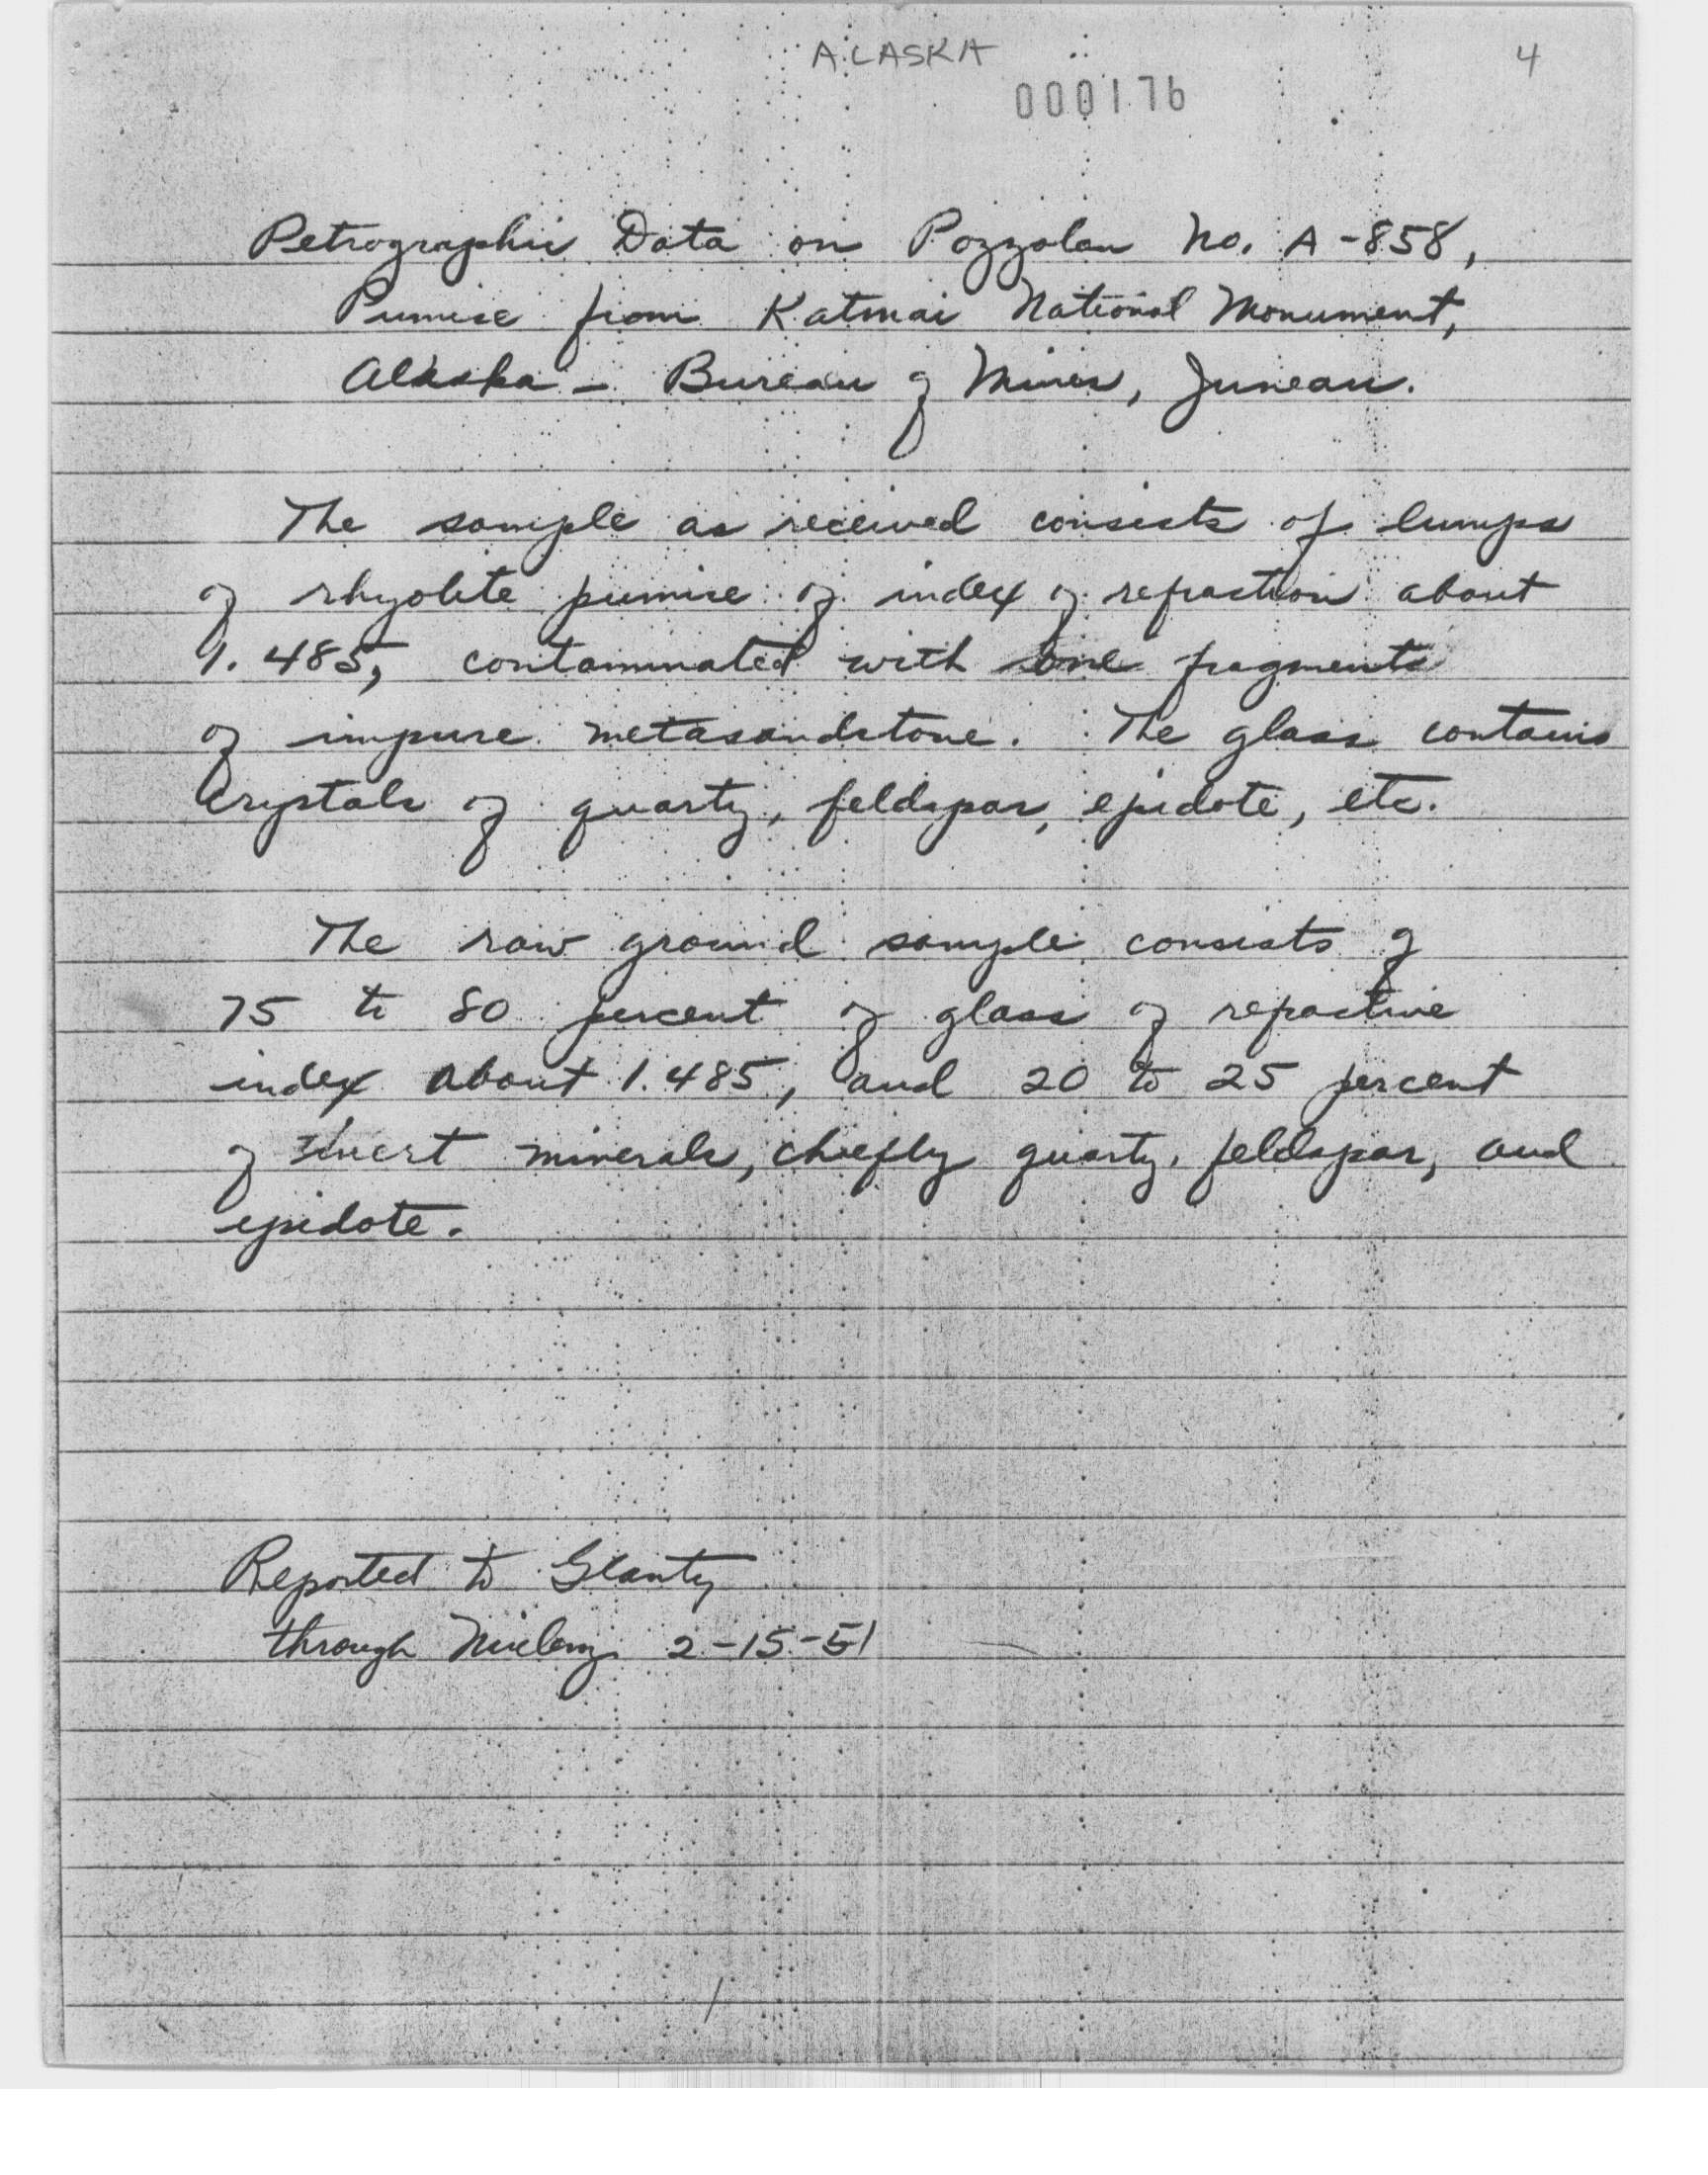 ALASKA
4
000176
Petrographic Data on Pozzolan No. A-858,
Pumice from Katmai National Monument,
Alaska - Bureau of Mines, Juneau.
The sample as received consists of lumps
of rhyolite pumice of index of refraction about
1.485, contaminated with fragments
of impure metasandstone. The glass contains
crystals of quartz, feldspar, epidote, etc.
The raw ground sample consists of
75 to 80 percent of glass of refractive
index about 1.485, and 20 to 25 percent
of inert minerals, chiefly quartz, feldspar, and
epidote.
Reported to Glantz
through 2-15-51